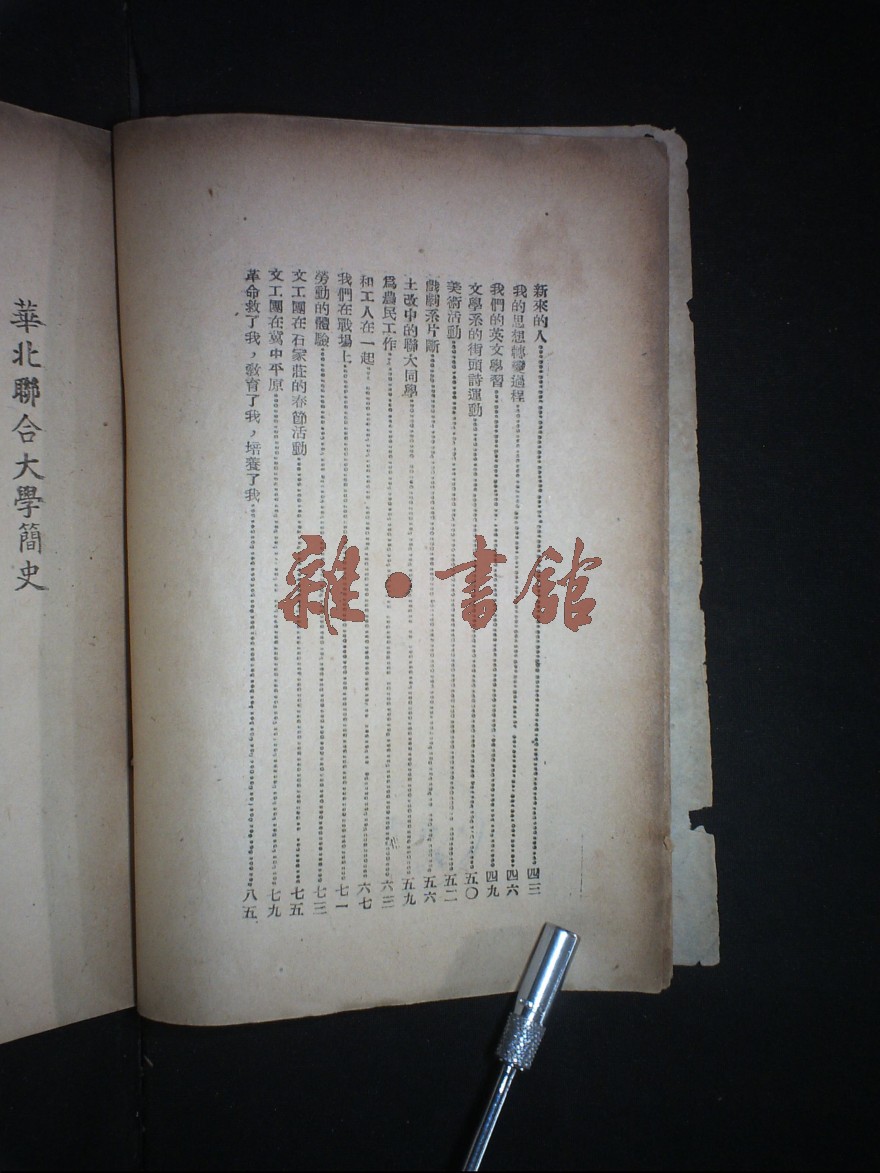 新來的人 四三
我的思想轉變過程 四六
我們的英文學習 四九
文學系的街頭詩運動 五〇
美術活動 五二
戲劇系片斷 五六
土改中的聯大同學 五九
爲農民工作 六三
和工人在一起 六七
我們在戰場上 七一
勞動的體驗 七三
文工團在石家莊的春節活動 七五
文工團在冀中平原 七九
革命救了我，敎育了我，培養了我 八五
華北聯合大學簡史
雜·書館